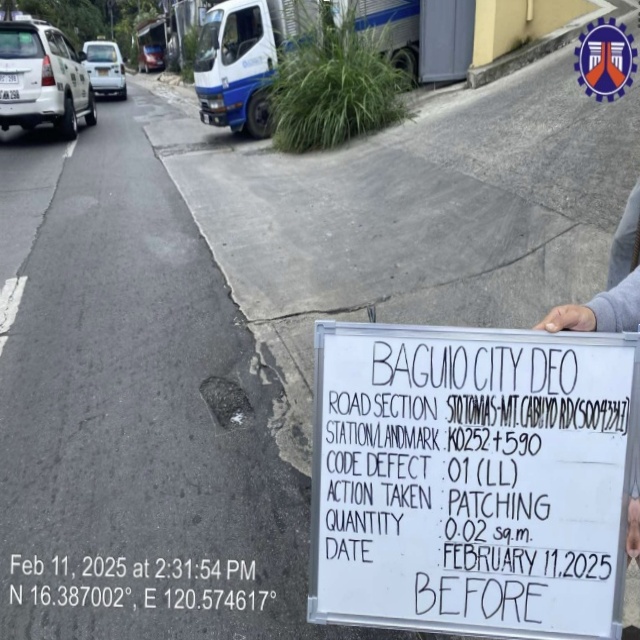 BAGUIO CITY DEO
ROAD SECTION STO TOMAS-MT. CABUYO RD
STATION/LANDMARK : K0252+590
CODE DEFECT : 01 (LL)
ACTION TAKEN : PATCHING
QUANTITY : 0.02 sq.m.
DATE : FEBRUARY 11, 2025
BEFORE
Feb 11, 2025 at 2:31:54 PM
N 16.387002°, E 120.574617°